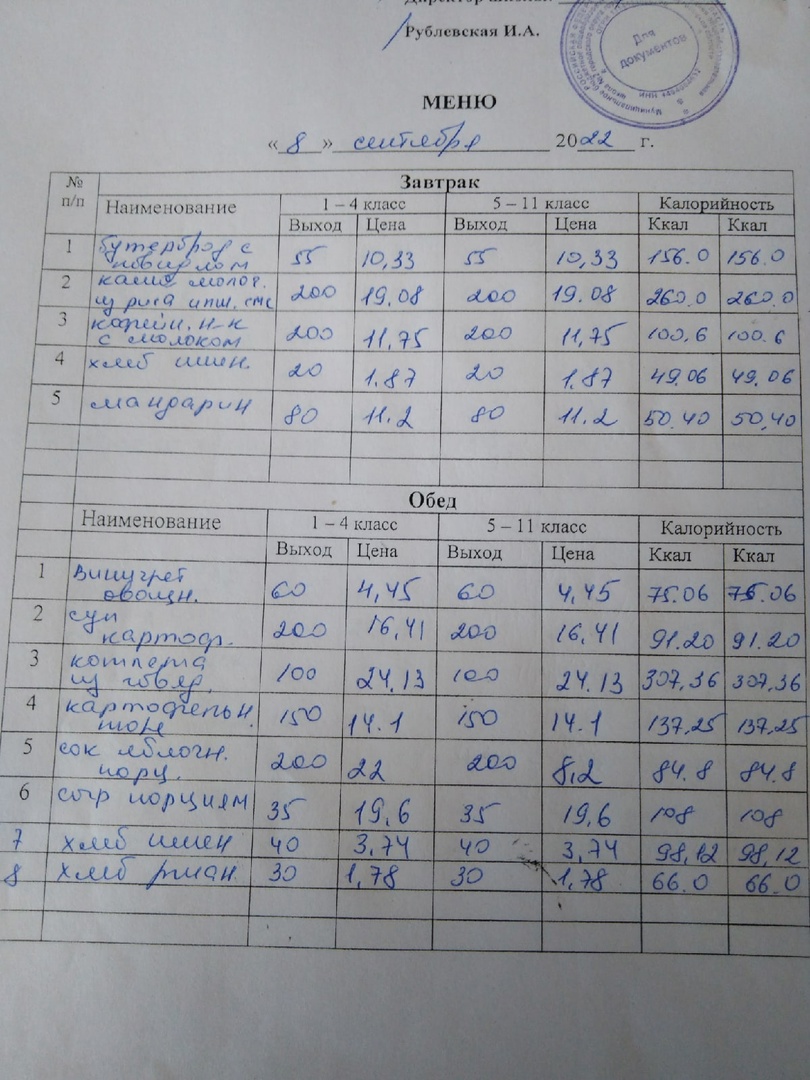 Рублевская И.А.
Для
документов
МЕНЮ
« 8 » сентября 2022 г.
№ п/п Завтрак
Наименование 1 – 4 класс 5 – 11 класс Калорийность
Выход Цена Выход Цена Ккал Ккал
1 бутерброд с
повидлом 55 10,33 55 10,33 156.0 156.0
2 каша молоч.
из риса и пш. 200 19.08 200 19.08 260.0 260.0
3 кофейн. н-к
с молоком 200 11,75 200 11,75 100,6 100.6
4 хлеб пшен. 20 1.87 20 1.87 49.06 49.06
5 мандарин 80 11.2 80 11.2 50.40 50,40
Обед
Наименование 1 – 4 класс 5 – 11 класс Калорийность
Выход Цена Выход Цена Ккал Ккал
1 Винигрет
овощн. 60 4,45 60 4,45 75.06 75.06
2 суп
картоф. 200 16,41 200 16,41 91.20 91.20
3 котлета
из говяд. 100 24.13 100 24.13 307,36 307,36
4 картофельн.
пюре 150 14.1 150 14.1 137,25 137,25
5 сок яблочн.
порц. 200 22 200 8,2 84.8 84.8
6 сыр порциям 35 19,6 35 19,6 108 108
7 хлеб пшен 40 3,74 40 3,74 98,12 98,12
8 хлеб ржан. 30 1,78 30 1,78 66.0 66.0